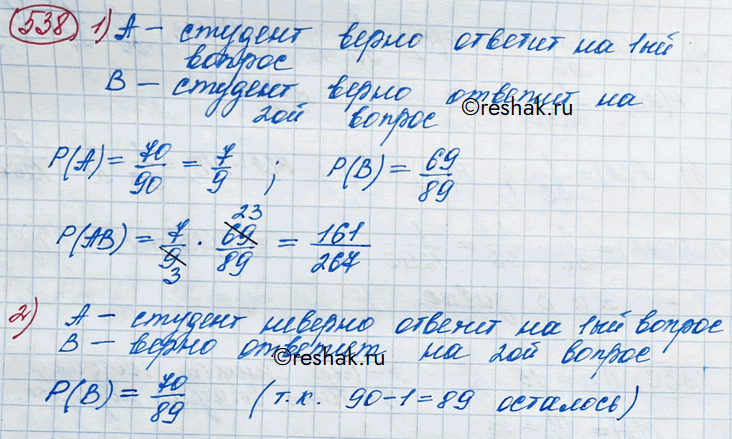 538 1) A – студент верно ответит на 1ый
вопрос
B – студент верно ответит на
2ой вопрос
©reshak.ru
P(A) = 70/90 = 7/9 ; P(B) = 69/89
23
P(AB) = 7/9 · 69/89 = 161/267
3
2) A – студент неверно ответит на 1ый вопрос
B – верно ответит на 2ой вопрос
©reshak.ru
P(B) = 70/89 (т.к. 90-1=89 осталось)